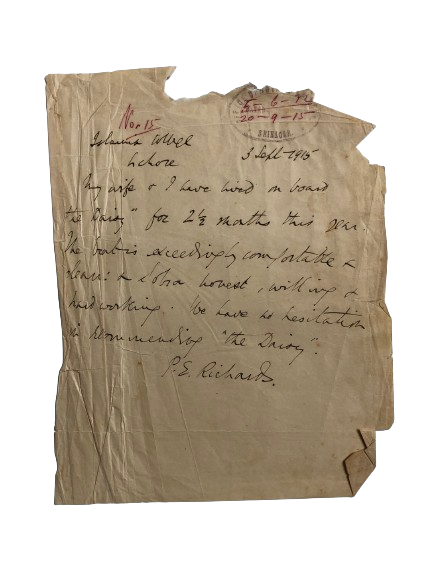 No 15
20-9-15
SRINAGAR
Islamia College
Lahore
3 Sept 1915
My wife & I have lived on board
the Daisy" for 2½ months this year.
The boat is exceedingly comfortable &
clean: & Sobra honest, willing &
hardworking. We have no hesitation
in recommending "the Daisy".
P.E. Richards.